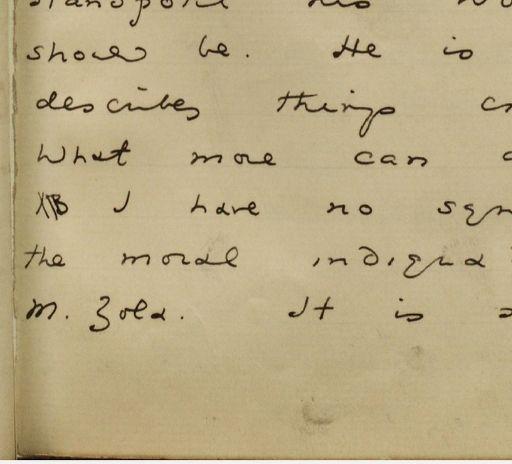 should be. He is
describes things
What more can
I have no
the moral
M. Zola. It is